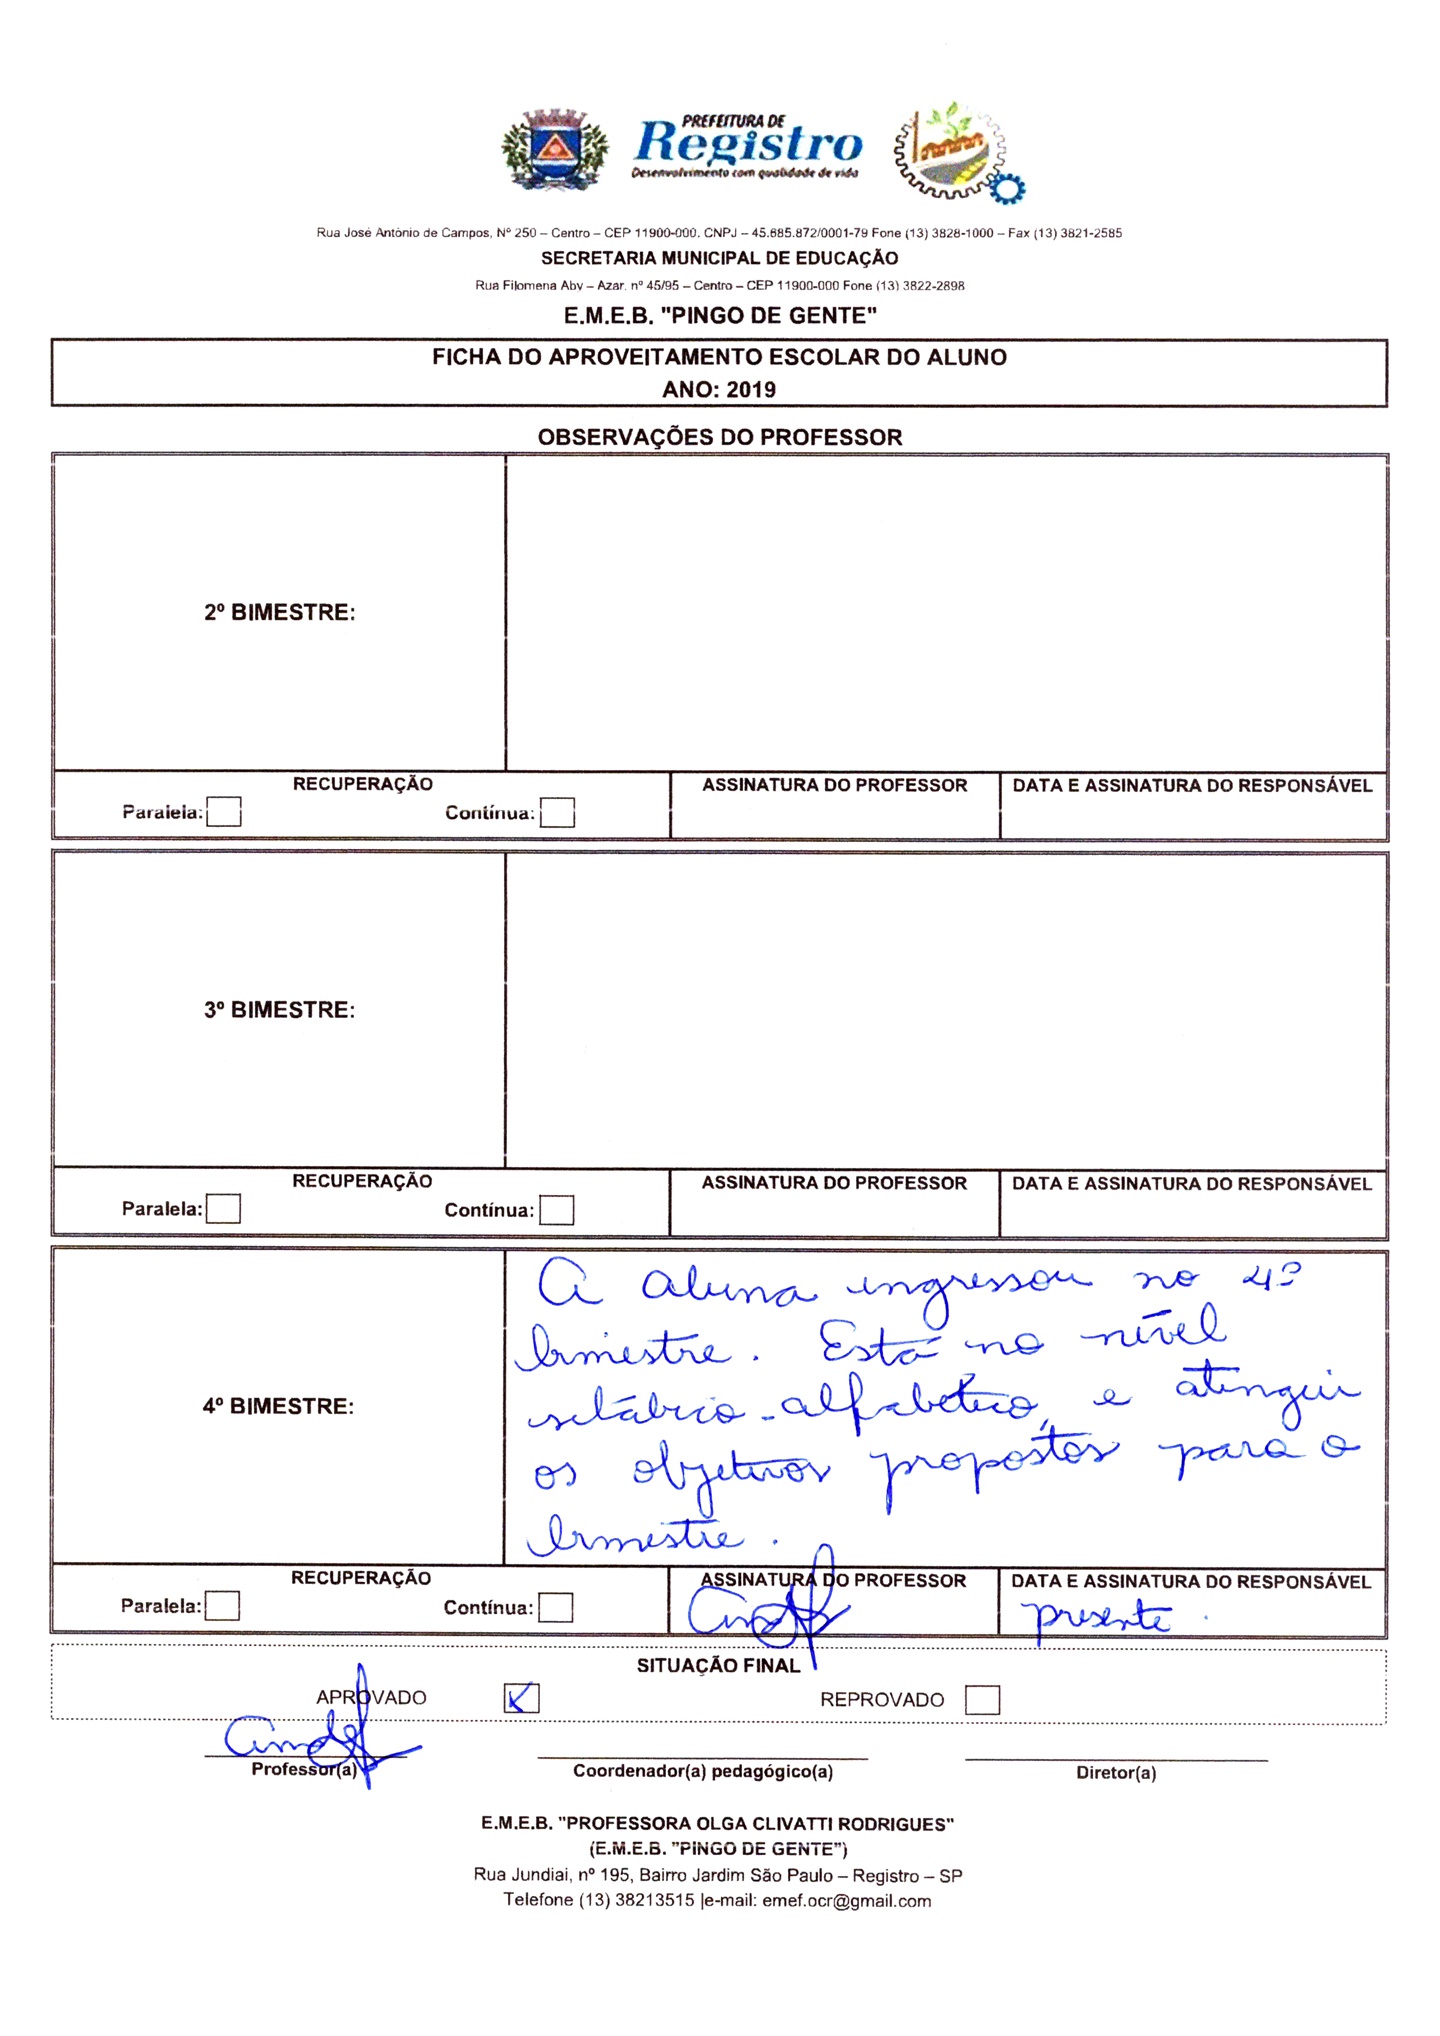 PREFEITURA DE
Registro
Desenvolvimento com qualidade de vida
Rua José Antônio de Campos, Nº 250 – Centro – CEP 11900-000. CNPJ – 45.685.872/0001-79 Fone (13) 3828-1000 – Fax (13) 3821-2585
SECRETARIA MUNICIPAL DE EDUCAÇÃO
Rua Filomena Aby – Azar, nº 45/95 – Centro – CEP 11900-000 Fone (13) 3822-2898
E.M.E.B. "PINGO DE GENTE"
FICHA DO APROVEITAMENTO ESCOLAR DO ALUNO
ANO: 2019
OBSERVAÇÕES DO PROFESSOR
2º BIMESTRE:
RECUPERAÇÃO
Paralela:
Contínua:
ASSINATURA DO PROFESSOR
DATA E ASSINATURA DO RESPONSÁVEL
3º BIMESTRE:
RECUPERAÇÃO
Paralela:
Contínua:
ASSINATURA DO PROFESSOR
DATA E ASSINATURA DO RESPONSÁVEL
4º BIMESTRE:
A aluna ingressou no 4º
bimestre. Está no nível
silábico-alfabético, e atingiu
os objetivos propostos para o
bimestre.
RECUPERAÇÃO
Paralela:
Contínua:
ASSINATURA DO PROFESSOR
DATA E ASSINATURA DO RESPONSÁVEL
presente.
SITUAÇÃO FINAL
APROVADO
REPROVADO
Professor(a)
Coordenador(a) pedagógico(a)
Diretor(a)
E.M.E.B. "PROFESSORA OLGA CLIVATTI RODRIGUES"
(E.M.E.B. "PINGO DE GENTE")
Rua Jundiai, nº 195, Bairro Jardim São Paulo – Registro – SP
Telefone (13) 38213515 |e-mail: emef.ocr@gmail.com